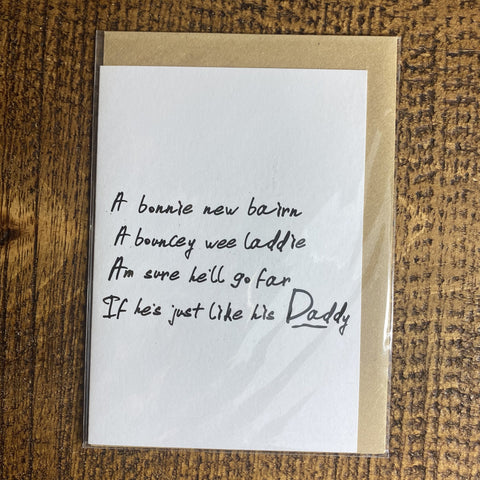 A bonnie new bairn
A bouncey wee laddie
Am sure he'll go far
If he's just like his Daddy